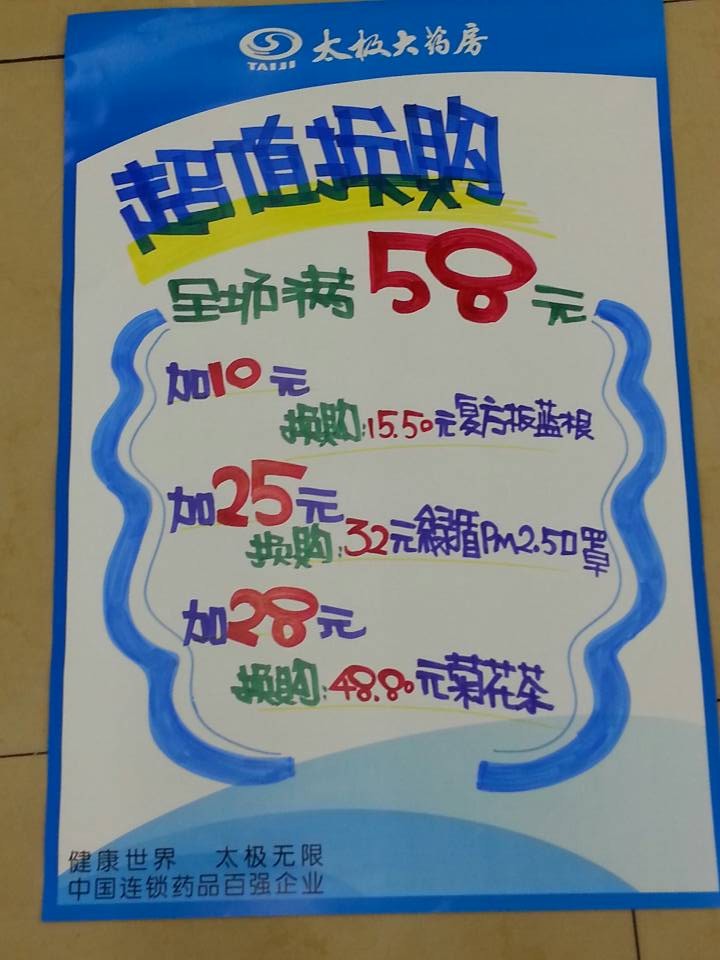 TAIJI 太极大药房
超值换购
全场满58元
加10元
换购:15.50元复方板蓝根
加25元
换购:32元绿盾Pm2.5口罩
加28元
换购:48.80元菊花茶
健康世界 太极无限
中国连锁药品百强企业